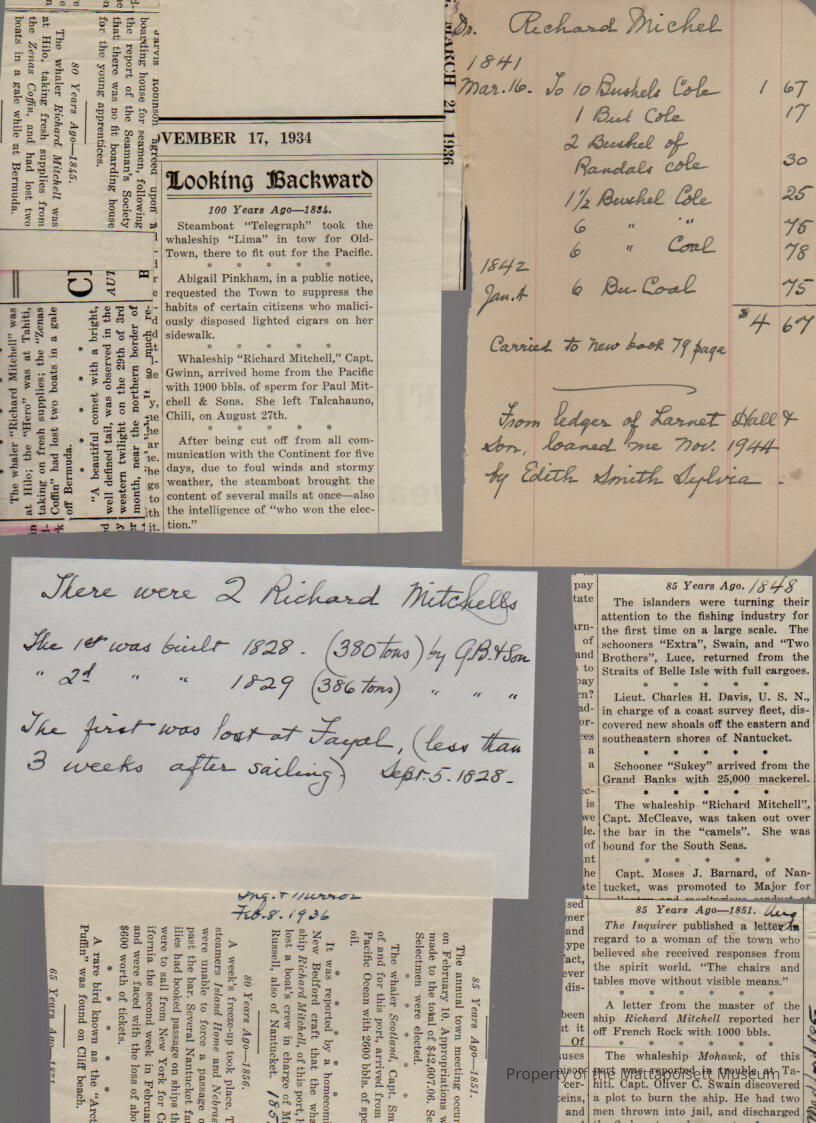 Jarvis Robinson agreed upon a
boarding house for seamen, following
the report of the Seaman's Society
that there was no fit boarding house
for the young apprentices.
80 Years Ago—1845.
The whaler Richard Mitchell was
at Hilo, taking fresh supplies from
the Zenas Coffin, and had lost two
boats in a gale while at Bermuda.
MARCH 21, 1936
VEMBER 17, 1934
Looking Backward
100 Years Ago—1834.
Steamboat "Telegraph" took the
whaleship "Lima" in tow for Old-
Town, there to fit out for the Pacific.
* * * * *
Abigail Pinkham, in a public notice,
requested the Town to suppress the
habits of certain citizens who malici-
ously disposed lighted cigars on her
sidewalk.
* * * * *
Whaleship "Richard Mitchell," Capt.
Gwinn, arrived home from the Pacific
with 1900 bbls. of sperm for Paul Mit-
chell & Sons. She left Talcahauno,
Chili, on August 27th.
* * * * *
After being cut off from all com-
munication with the Continent for five
days, due to foul winds and stormy
weather, the steamboat brought the
content of several mails at once—also
the intelligence of "who won the elec-
tion."
"A beautiful comet with a bright,
well defined tail, was observed in the
western twilight on the 29th of 3rd
month, near the northern border of
The whaler "Richard Mitchell" was
at Hilo; the "Hero" was at Tahiti,
taking on fresh supplies; the "Zenas
Coffin" had lost two boats in a gale
off Bermuda.
Dr. Richard Michel
1841
Mar. 16. To 10 Bushels Cole 1 67
1 But Cole 17
2 Bushel of
Randals cole 30
1 1/2 Bushel Cole 25
6 " " 75
6 " Coal 78
1842
Jan. 6 Bu Coal 75
$4 67
Carried to new book 79 page
From ledger of Larnet Hall &
Son, loaned me Nov. 1944
by Edith Smith Sylvia.
There were 2 Richard Mitchells
The 1st was built 1828. (380 tons) by G.B. & Son
" 2d " " 1829 (386 tons) " " "
The first was lost at Fayal, (less than
3 weeks after sailing) Sept. 5. 1828-
85 Years Ago. 1848
The islanders were turning their
attention to the fishing industry for
the first time on a large scale. The
schooners "Extra", Swain, and "Two
Brothers", Luce, returned from the
Straits of Belle Isle with full cargoes.
* * * * *
Lieut. Charles H. Davis, U. S. N.,
in charge of a coast survey fleet, dis-
covered new shoals off the eastern and
southeastern shores of Nantucket.
* * * * *
Schooner "Sukey" arrived from the
Grand Banks with 25,000 mackerel.
* * * * *
The whaleship "Richard Mitchell",
Capt. McCleave, was taken out over
the bar in the "camels". She was
bound for the South Seas.
* * * * *
Capt. Moses J. Barnard, of Nan-
tucket, was promoted to Major for
Inq. & Mirror
Feb. 8. 1936
85 Years Ago—1851.
The annual town meeting occur
on February 10. Appropriations w
made to the total of $42,607.06. Se
Selectmen were elected.
* * * *
The whaler Scotland, Capt. Sm
of and for this port, arrived from
Pacific Ocean with 2600 bbls. of spe
oil.
* * * *
It was reported by a homecomi
New Bedford craft that the wha
ship Richard Mitchell, of this port, h
lost a boat's crew in charge of M
Russell, also of Nantucket.
80 Years Ago—1856.
A week's freeze-up took place. T
steamers Island Home and Nebras
were unable to force a passage o
past the bar. Several Nantucket fa
ilies had booked passage on ships th
were to sail from New York for C
ifornia the second week in Februar
and were faced with the loss of abo
$600 worth of tickets.
* * * * *
A rare bird known as the "Arct
Puffin" was found on Cliff beach.
65 Years Ago—1871
85 Years Ago—1851. Aug
The Inquirer published a letter in
regard to a woman of the town who
believed she received responses from
the spirit world. "The chairs and
tables move without visible means."
* * * * *
A letter from the master of the
ship Richard Mitchell reported her
off French Rock with 1000 bbls.
* * * * *
The whaleship Mohawk, of this
port was reported in trouble at Ta-
hiti. Capt. Oliver C. Swain discovered
a plot to burn the ship. He had two
men thrown into jail, and discharged
Property of the Mattapoisett Museum